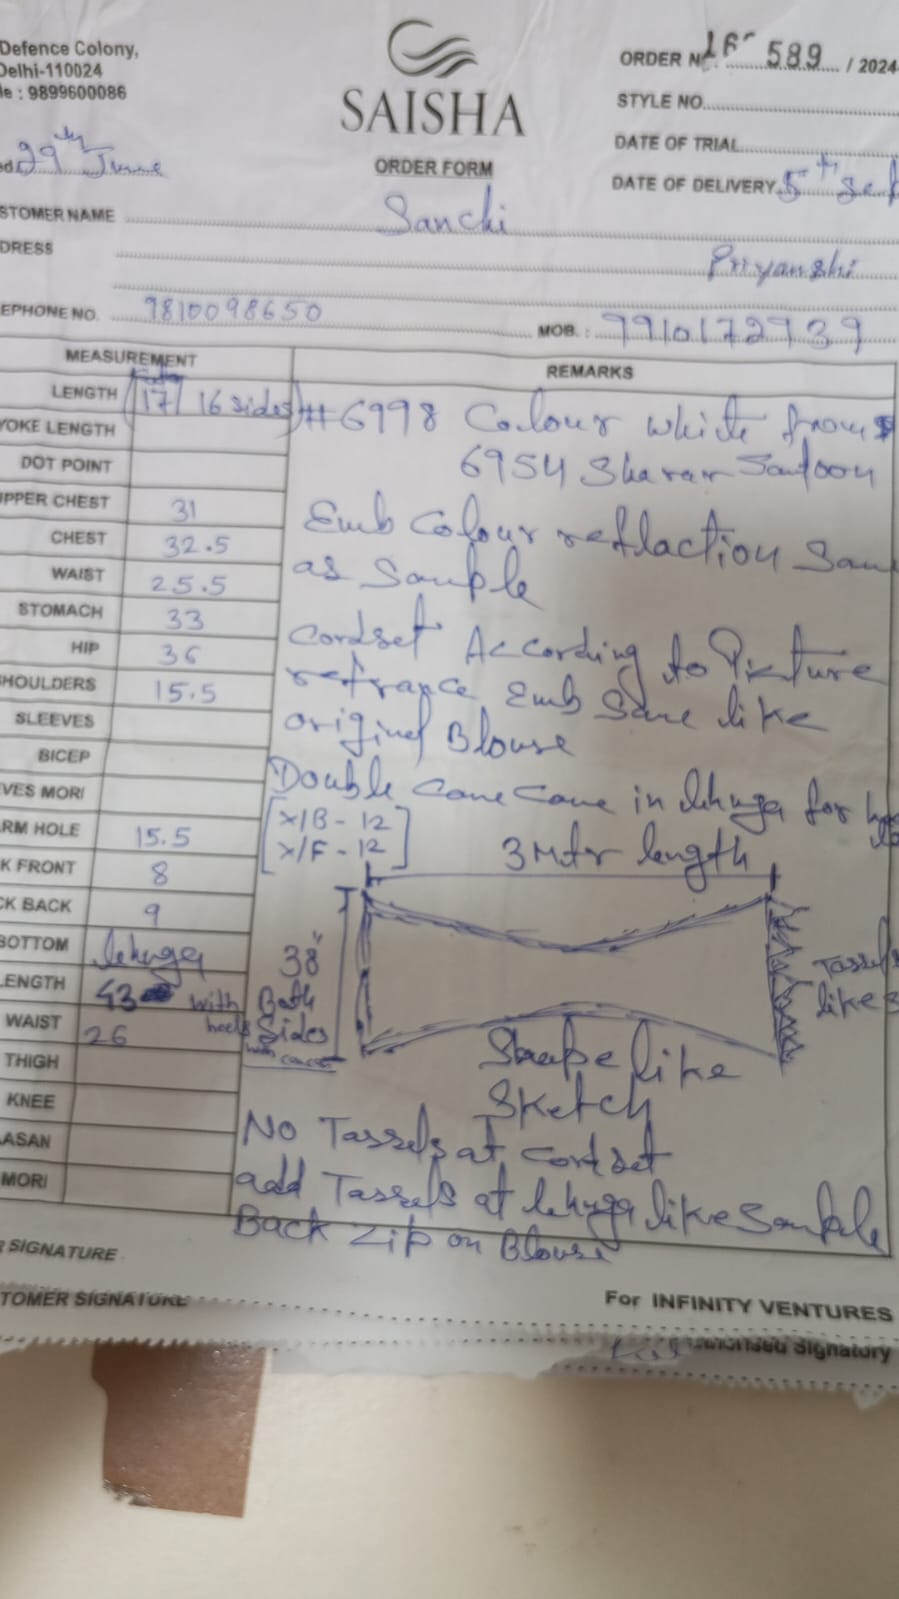 Defence Colony,
Delhi-110024
le : 9899600086
SAISHA
ORDER FORM
ORDER N 589 / 2024
STYLE NO.
DATE OF TRIAL
DATE OF DELIVERY 5th Sep
ed 29th June
STOMER NAME Sanchi
DRESS Priyanshi
EPHONE NO. 9810098650 MOB. : 9910172939
MEASUREMENT
REMARKS
LENGTH 17 / 16 sides
YOKE LENGTH
DOT POINT
UPPER CHEST 31
CHEST 32.5
WAIST 25.5
STOMACH 33
HIP 36
SHOULDERS 15.5
SLEEVES
BICEP
EVES MORI
ARM HOLE 15.5
CK FRONT 8
CK BACK 9
BOTTOM lehnga
LENGTH 43 with heels
WAIST 26
THIGH
KNEE
ASAN
MORI
#6998 Colour white from
6954 Sharar Santoon
Emb Colour reflaction Same
as Sample
Cordset According to Picture
refrance Emb Same like
original Blouse
Double Can Can in lehnga for
X/B - 12
X/F - 12
3 Mtr length
38"
Both
Sides
Tassels
like S
Shape like
Sketch
No Tassels at cordset
add Tassels at lehnga like Sample
Back Zip on Blouse
R SIGNATURE
TOMER SIGNATURE
For INFINITY VENTURES
Authorised Signatory